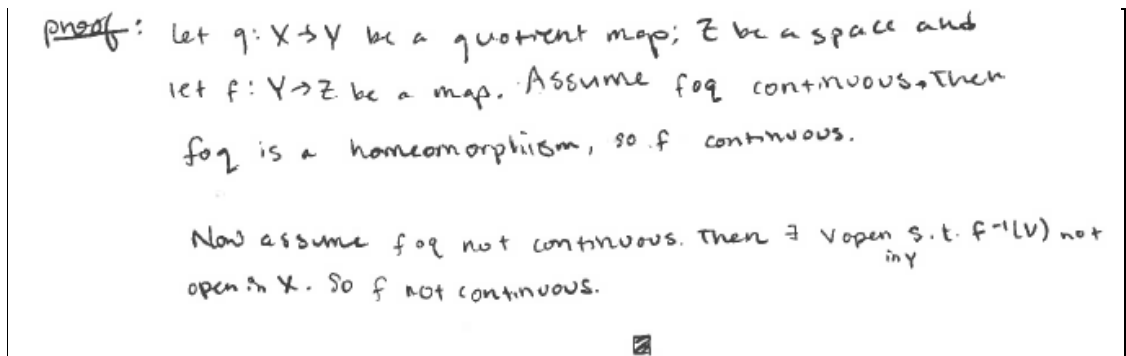 proof: Let q: X→Y be a quotient map; Z be a space and
let f: Y→Z be a map. Assume f∘q continuous. Then
f∘q is a homeomorphism, so f continuous.
Now assume f∘q not continuous. Then ∃ V open s.t. f⁻¹(V) not
in Y
open in X. So f not continuous.